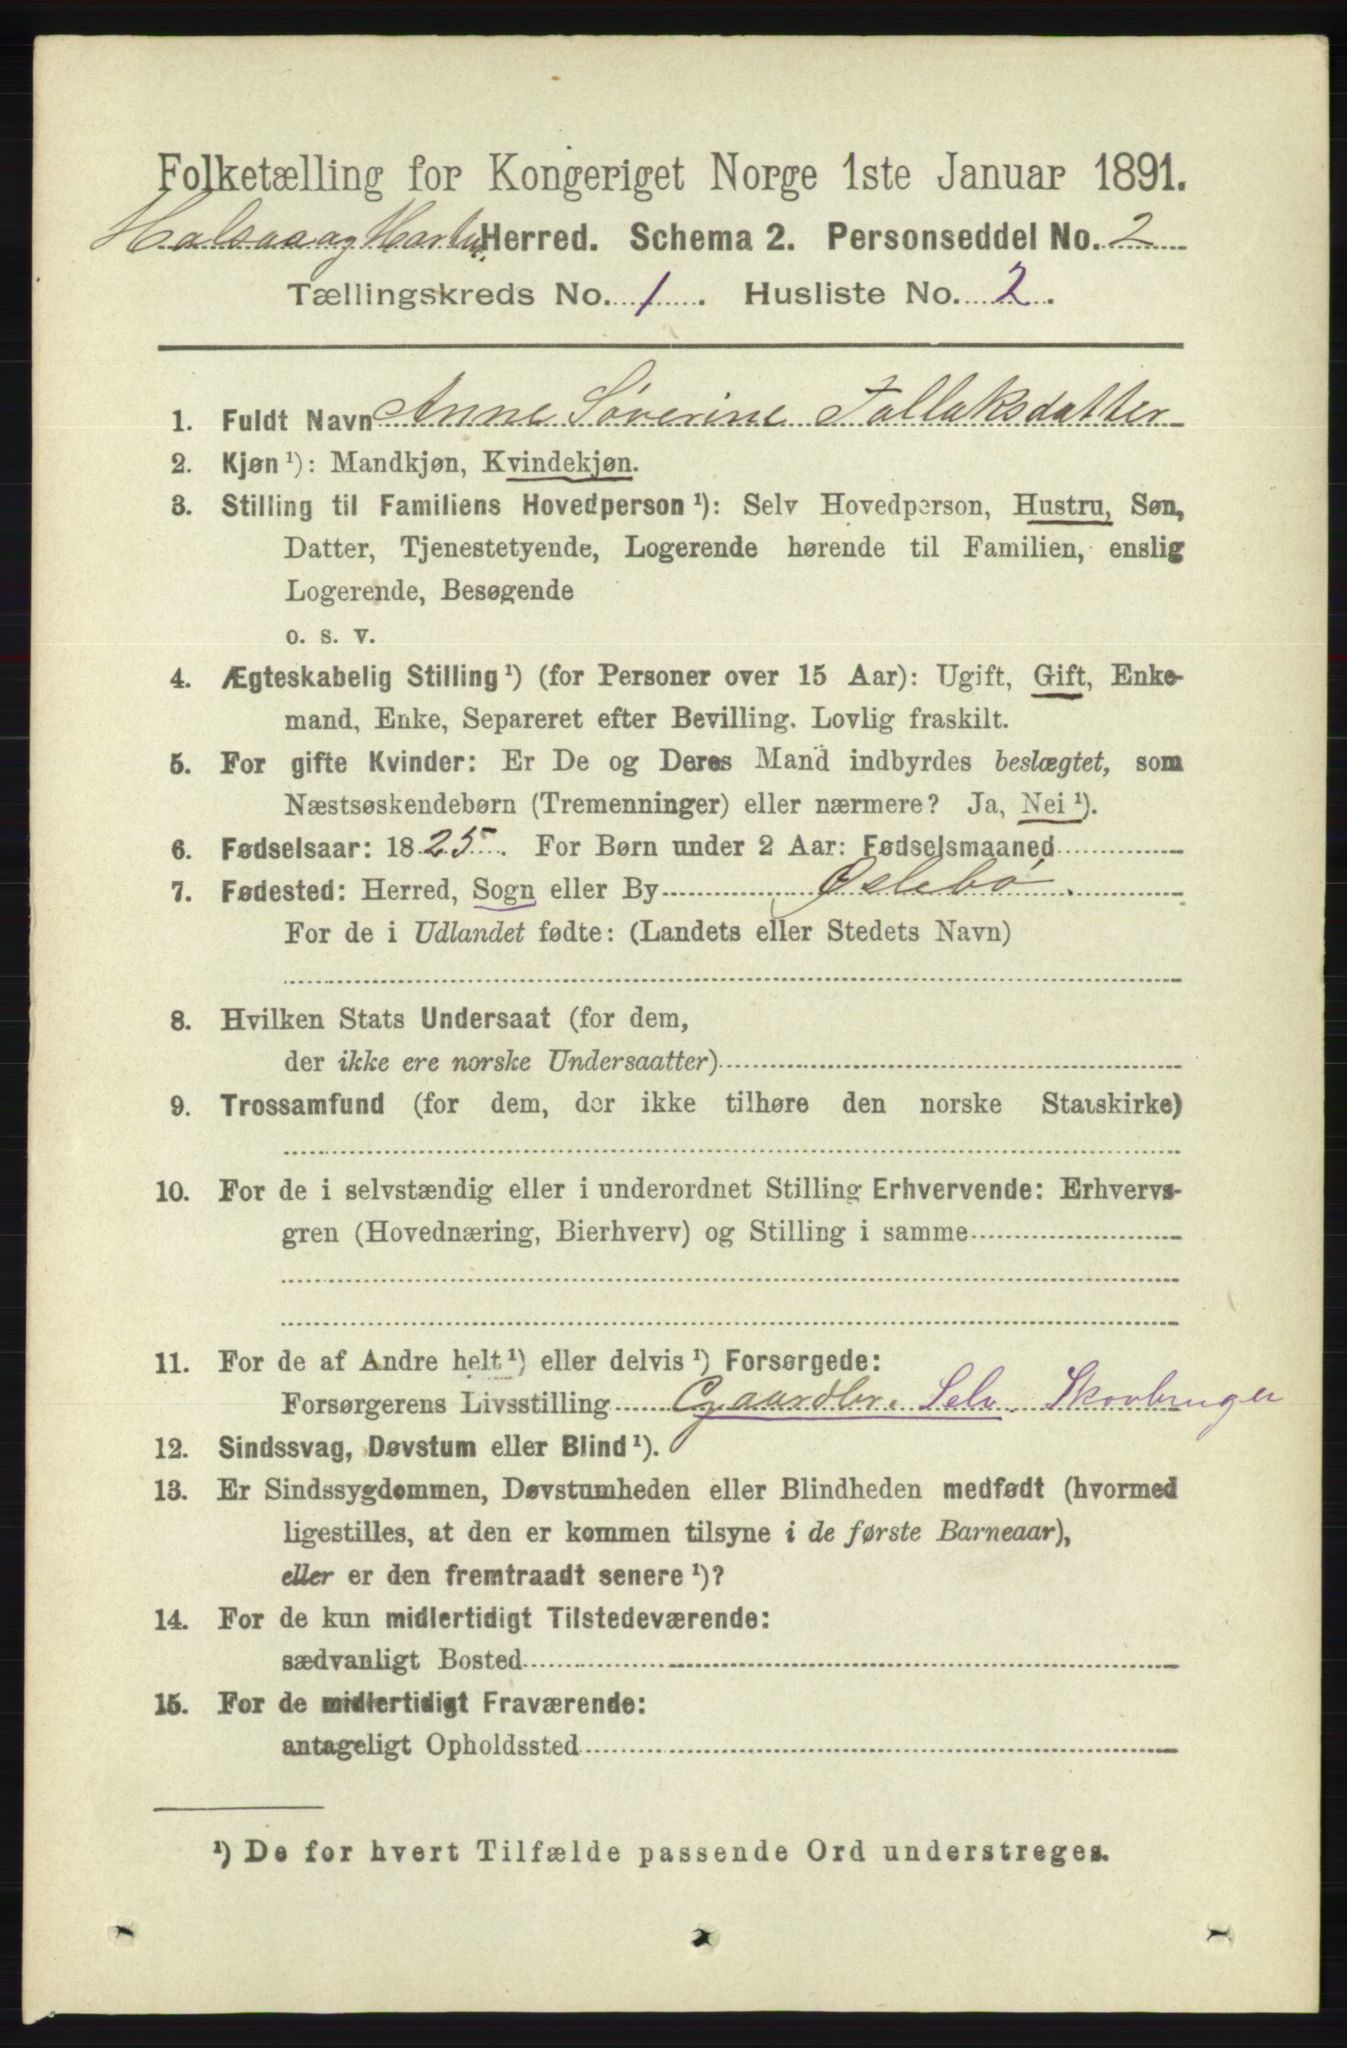 Folketælling for Kongeriget Norge 1ste Januar 1891.
Halsaa og Herred. Schema 2. Personseddel No. 2
Tællingskreds No. 1. Husliste No. 2.
1. Fuldt Navn Anne Søverine Tallaksdatter
2. Kjøn ¹): Mandkjøn, Kvindekjøn.
3. Stilling til Familiens Hovedperson ¹): Selv Hovedperson, Hustru, Søn,
Datter, Tjenestetyende, Logerende hørende til Familien, enslig
Logerende, Besøgende
o. s. v.
4. Ægteskabelig Stilling ¹) (for Personer over 15 Aar): Ugift, Gift, Enke-
mand, Enke, Separeret efter Bevilling. Lovlig fraskilt.
5. For gifte Kvinder: Er De og Deres Mand indbyrdes beslægtet, som
Næstsøskendebørn (Tremenninger) eller nærmere? Ja, Nei ¹).
6. Fødselsaar: 1825. For Børn under 2 Aar: Fødselsmaaned
7. Fødested: Herred, Sogn eller By Øslebø.
For de i Udlandet fødte: (Landets eller Stedets Navn)
8. Hvilken Stats Undersaat (for dem,
der ikke ere norske Undersaatter)
9. Trossamfund (for dem, der ikke tilhøre den norske Statskirke)
10. For de i selvstændig eller i underordnet Stilling Erhvervende: Erhvervs-
gren (Hovednæring, Bierhverv) og Stilling i samme
11. For de af Andre helt ¹) eller delvis ¹) Forsørgede:
Forsørgerens Livsstilling Gaardbr. Selv. Skovbruger
12. Sindssvag, Døvstum eller Blind ¹).
13. Er Sindssygdommen, Døvstumheden eller Blindheden medfødt (hvormed
ligestilles, at den er kommen tilsyne i de første Barneaar),
eller er den fremtraadt senere ¹)?
14. For de kun midlertidigt Tilstedeværende:
sædvanligt Bosted
15. For de midlertidigt Fraværende:
antageligt Opholdssted
¹) De for hvert Tilfælde passende Ord understreges.